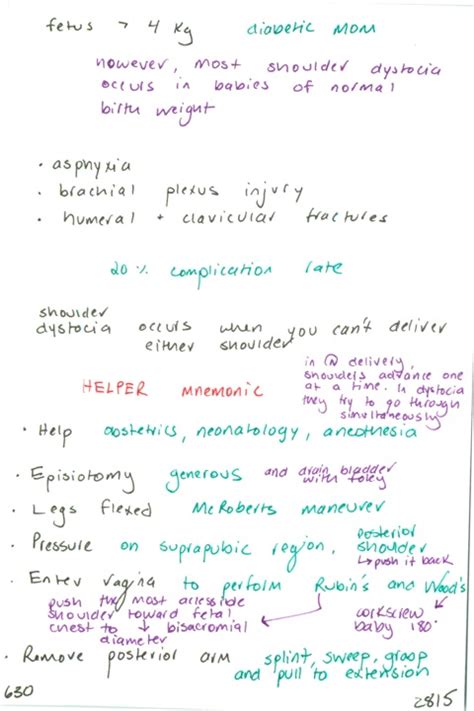 fetus > 4 kg diabetic mom
however, most shoulder dystocia
occurs in babies of normal
birth weight
• asphyxia
• brachial plexus injury
• humeral + clavicular fractures
20 % complication rate
shoulder
dystocia occurs when you can't deliver
either shoulder
in Ⓝ delivery,
shoulders advance one
at a time. In dystocia
they try to go through
simultaneously
HELPER mnemonic
• Help obstetrics, neonatology, anesthesia
• Episiotomy generous and drain bladder
with foley
• Legs flexed McRoberts maneuver
• Pressure on suprapubic region, posterior
shoulder
↳ push it back
• Enter vagina to perform Rubin's and Wood's
push the most accessible
shoulder toward fetal
chest to ↓ bisacromial
diameter
corkscrew
baby 180°
• Remove posterior arm splint, sweep, grasp
and pull to extension
630
2815